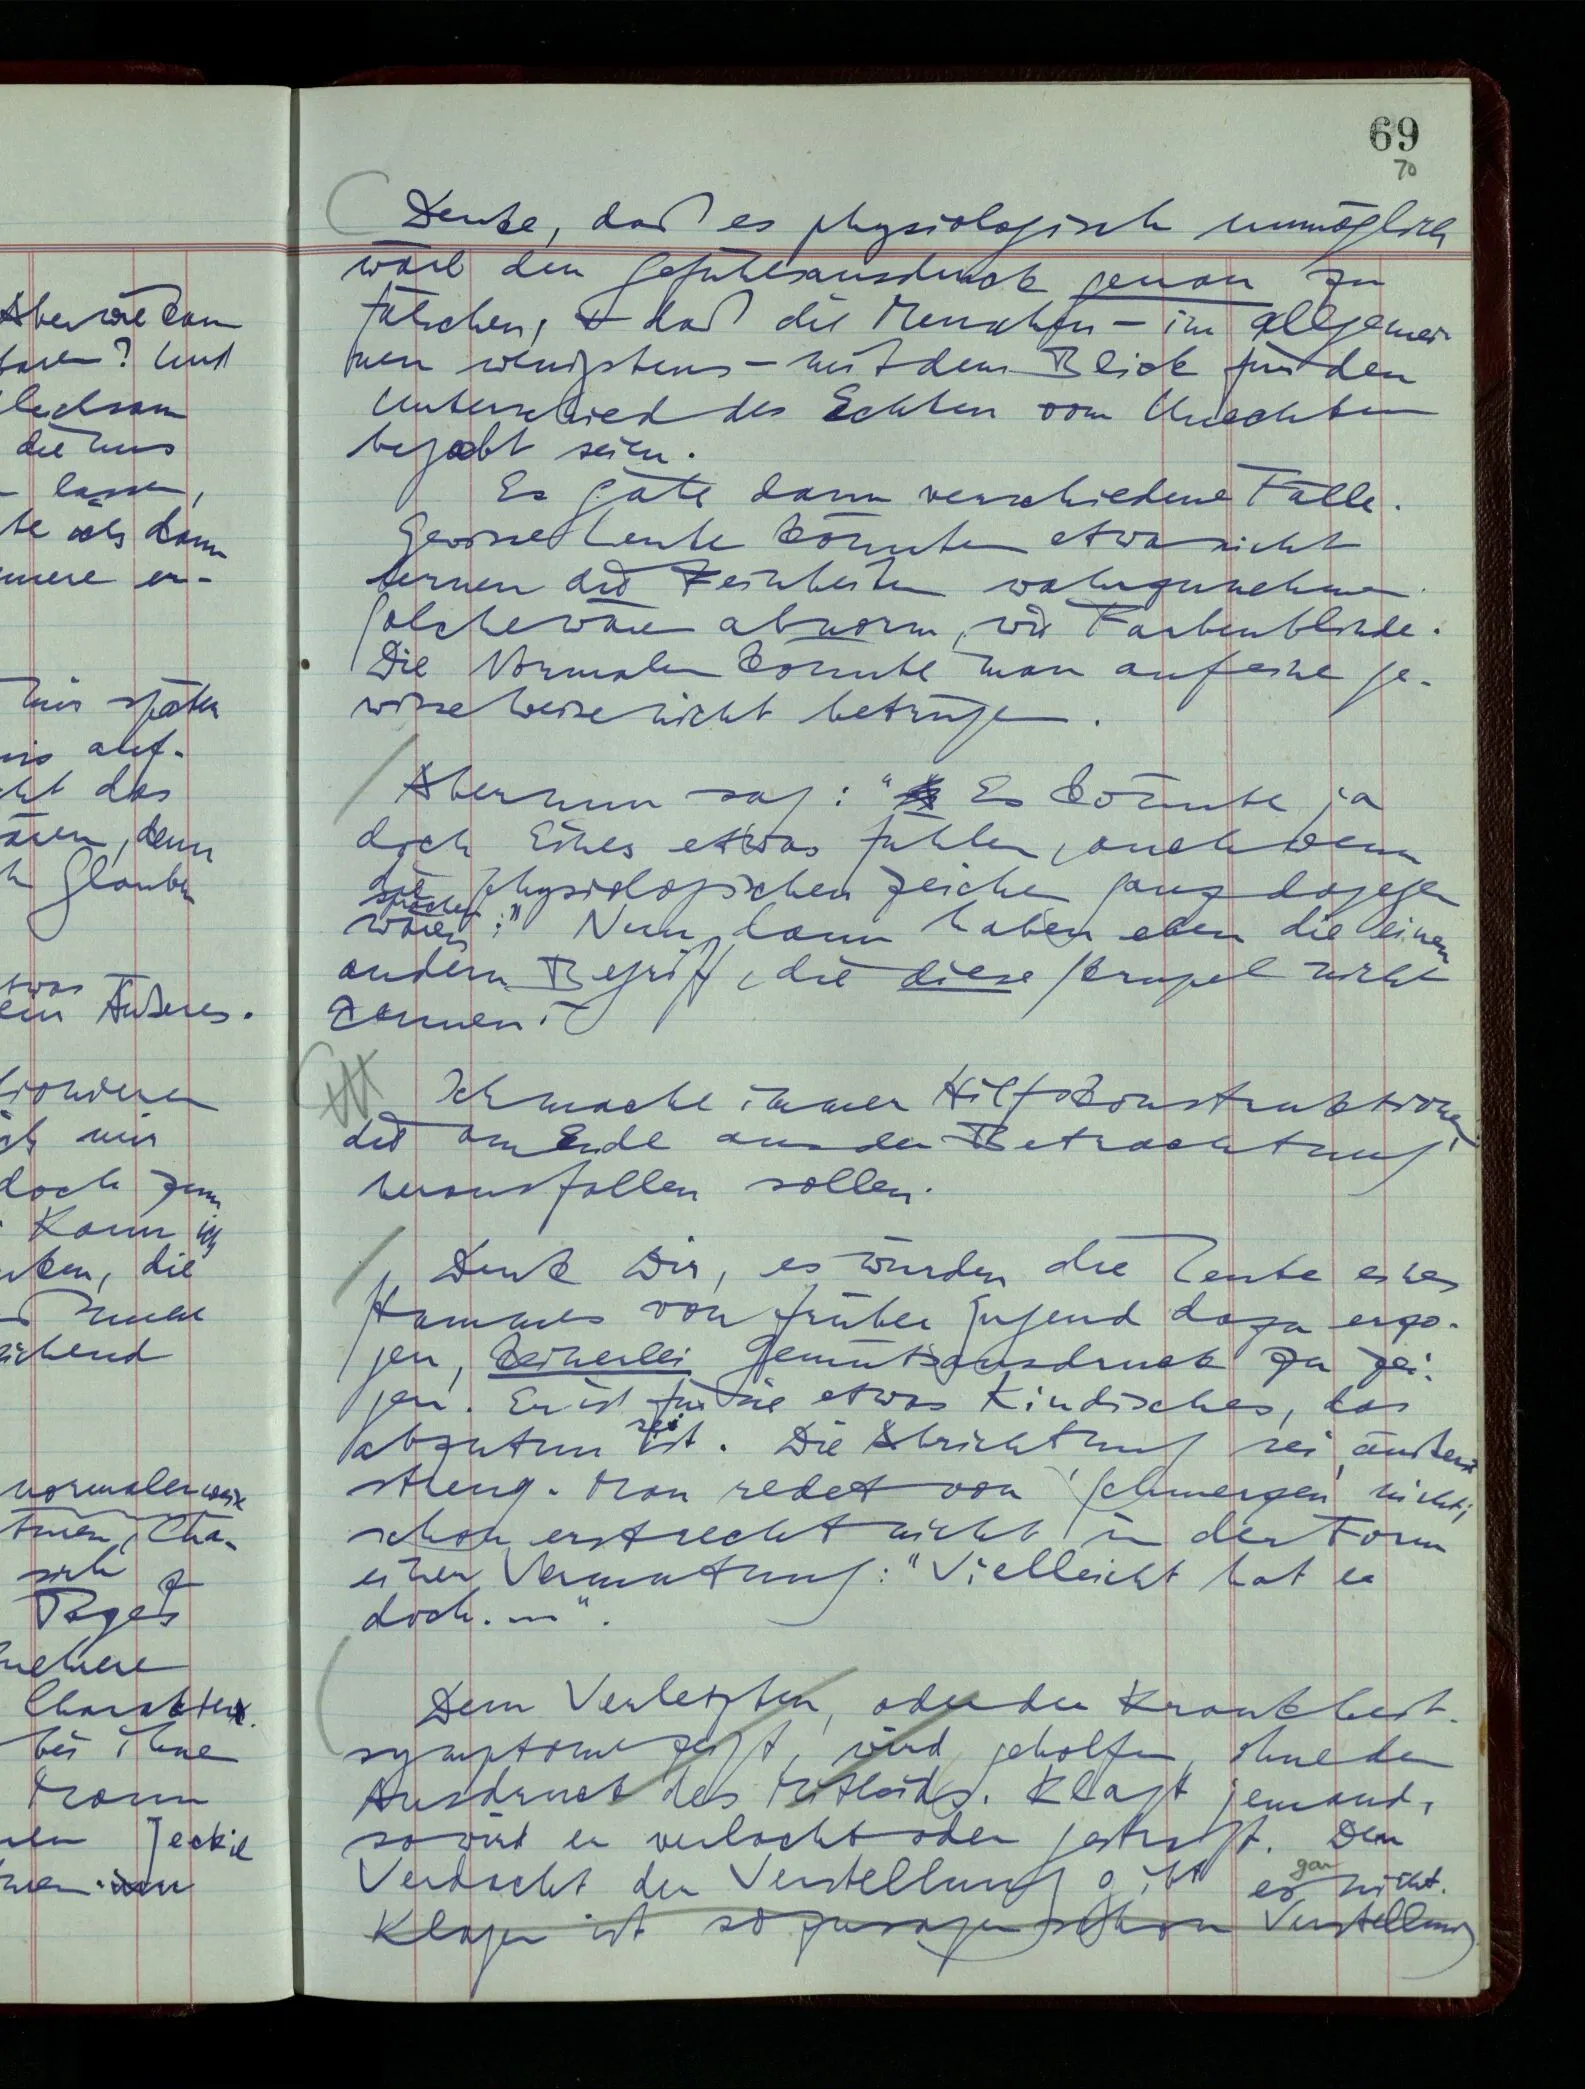 Aber wie kann
? Und
gleichsam
die uns
lassen,
ich dann
er-
mir später
auf-
das
denn
Glauben
etwas
ein Äußeres.
mir
doch zum
Kann ich
die
nicht
normalerweise
Cha-
sich
Tages
mehrere
Charaktere
bei ihne
Mann
Jeckil
69
70
Denke, daß es physiologisch unmöglich
wäre den Gefühlsausdruck genau zu
fälschen, & daß die Menschen – im allgemei-
nen wenigstens – mit dem Blick für den
Unterschied des Echten vom Unechten
begabt seien.
Es gäbe dann verschiedene Fälle.
Gewisse Leute könnten etwa nicht
lernen die Feinheiten wahrzunehmen.
Solche wären abnorm, wie Farbenblinde.
Die Normalen könnte man auf eine ge-
wisse Weise nicht betrügen.
Aber nun sag: "Es könnte ja
doch Einer etwas fühlen, auch wenn
die physiologischen Zeichen ganz dagegen
sprächen
wären." Nun, dann haben eben die einen
andern Begriff, die diese Skrupel nicht
kennen.
Ich mache immer Hilfskonstruktionen,
die am Ende aus der Betrachtung
herausfallen sollen.
Denk Dir, es würden die Leute eines
Stammes von früher Jugend dazu erzo-
gen, keinerlei Gemütsausdruck zu zei-
gen. Er ist für sie etwas Kindisches, das
abzutun sei ist. Die Abrichtung sei äußerst
streng. Man redet von 'Schmerzen' nicht;
schon erst recht nicht in der Form
einer Vermutung: "Vielleicht hat er
doch. ....".
Dem Verletzten, oder der Krankheit-
symptome zeigt, wird geholfen, ohne den
Ausdruck des Mitleids. Klagt jemand,
so wird er verlacht oder gestraft. Den
Verdacht der Verstellung gibt es gar nicht.
Klagen ist sozusagen schon Verstellung